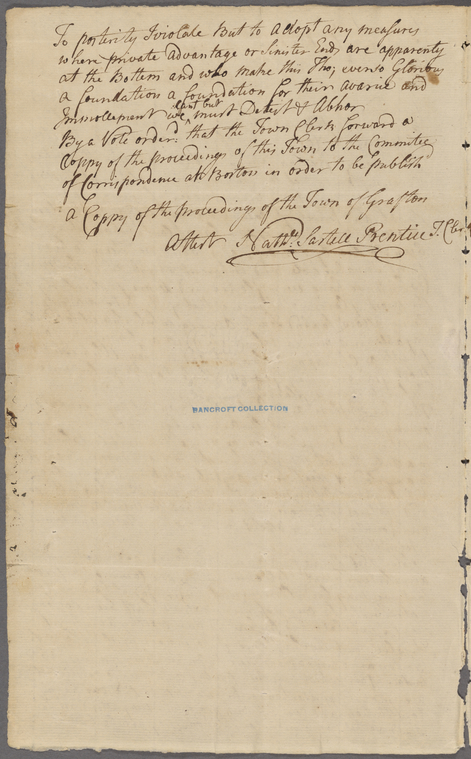 To posterity Iviolate But to adopt any measures
where private advantage or Sinister Ends are apparently
at the Botem and who make this Tho; ever so Glorious
a foundation a foundation for their avarice and
Immolement we cant but must Detest & Abhor
By a Vote order'd that the Town Clerk forward a
Coppy of the proceedings of this Town to the Committee
of Correspondence att Boston in order to be publish
a Coppy of the proceedings of the Town of Grafton
Attest Nath:ll Sartell Prentice T: Clerk
BANCROFT COLLECTION